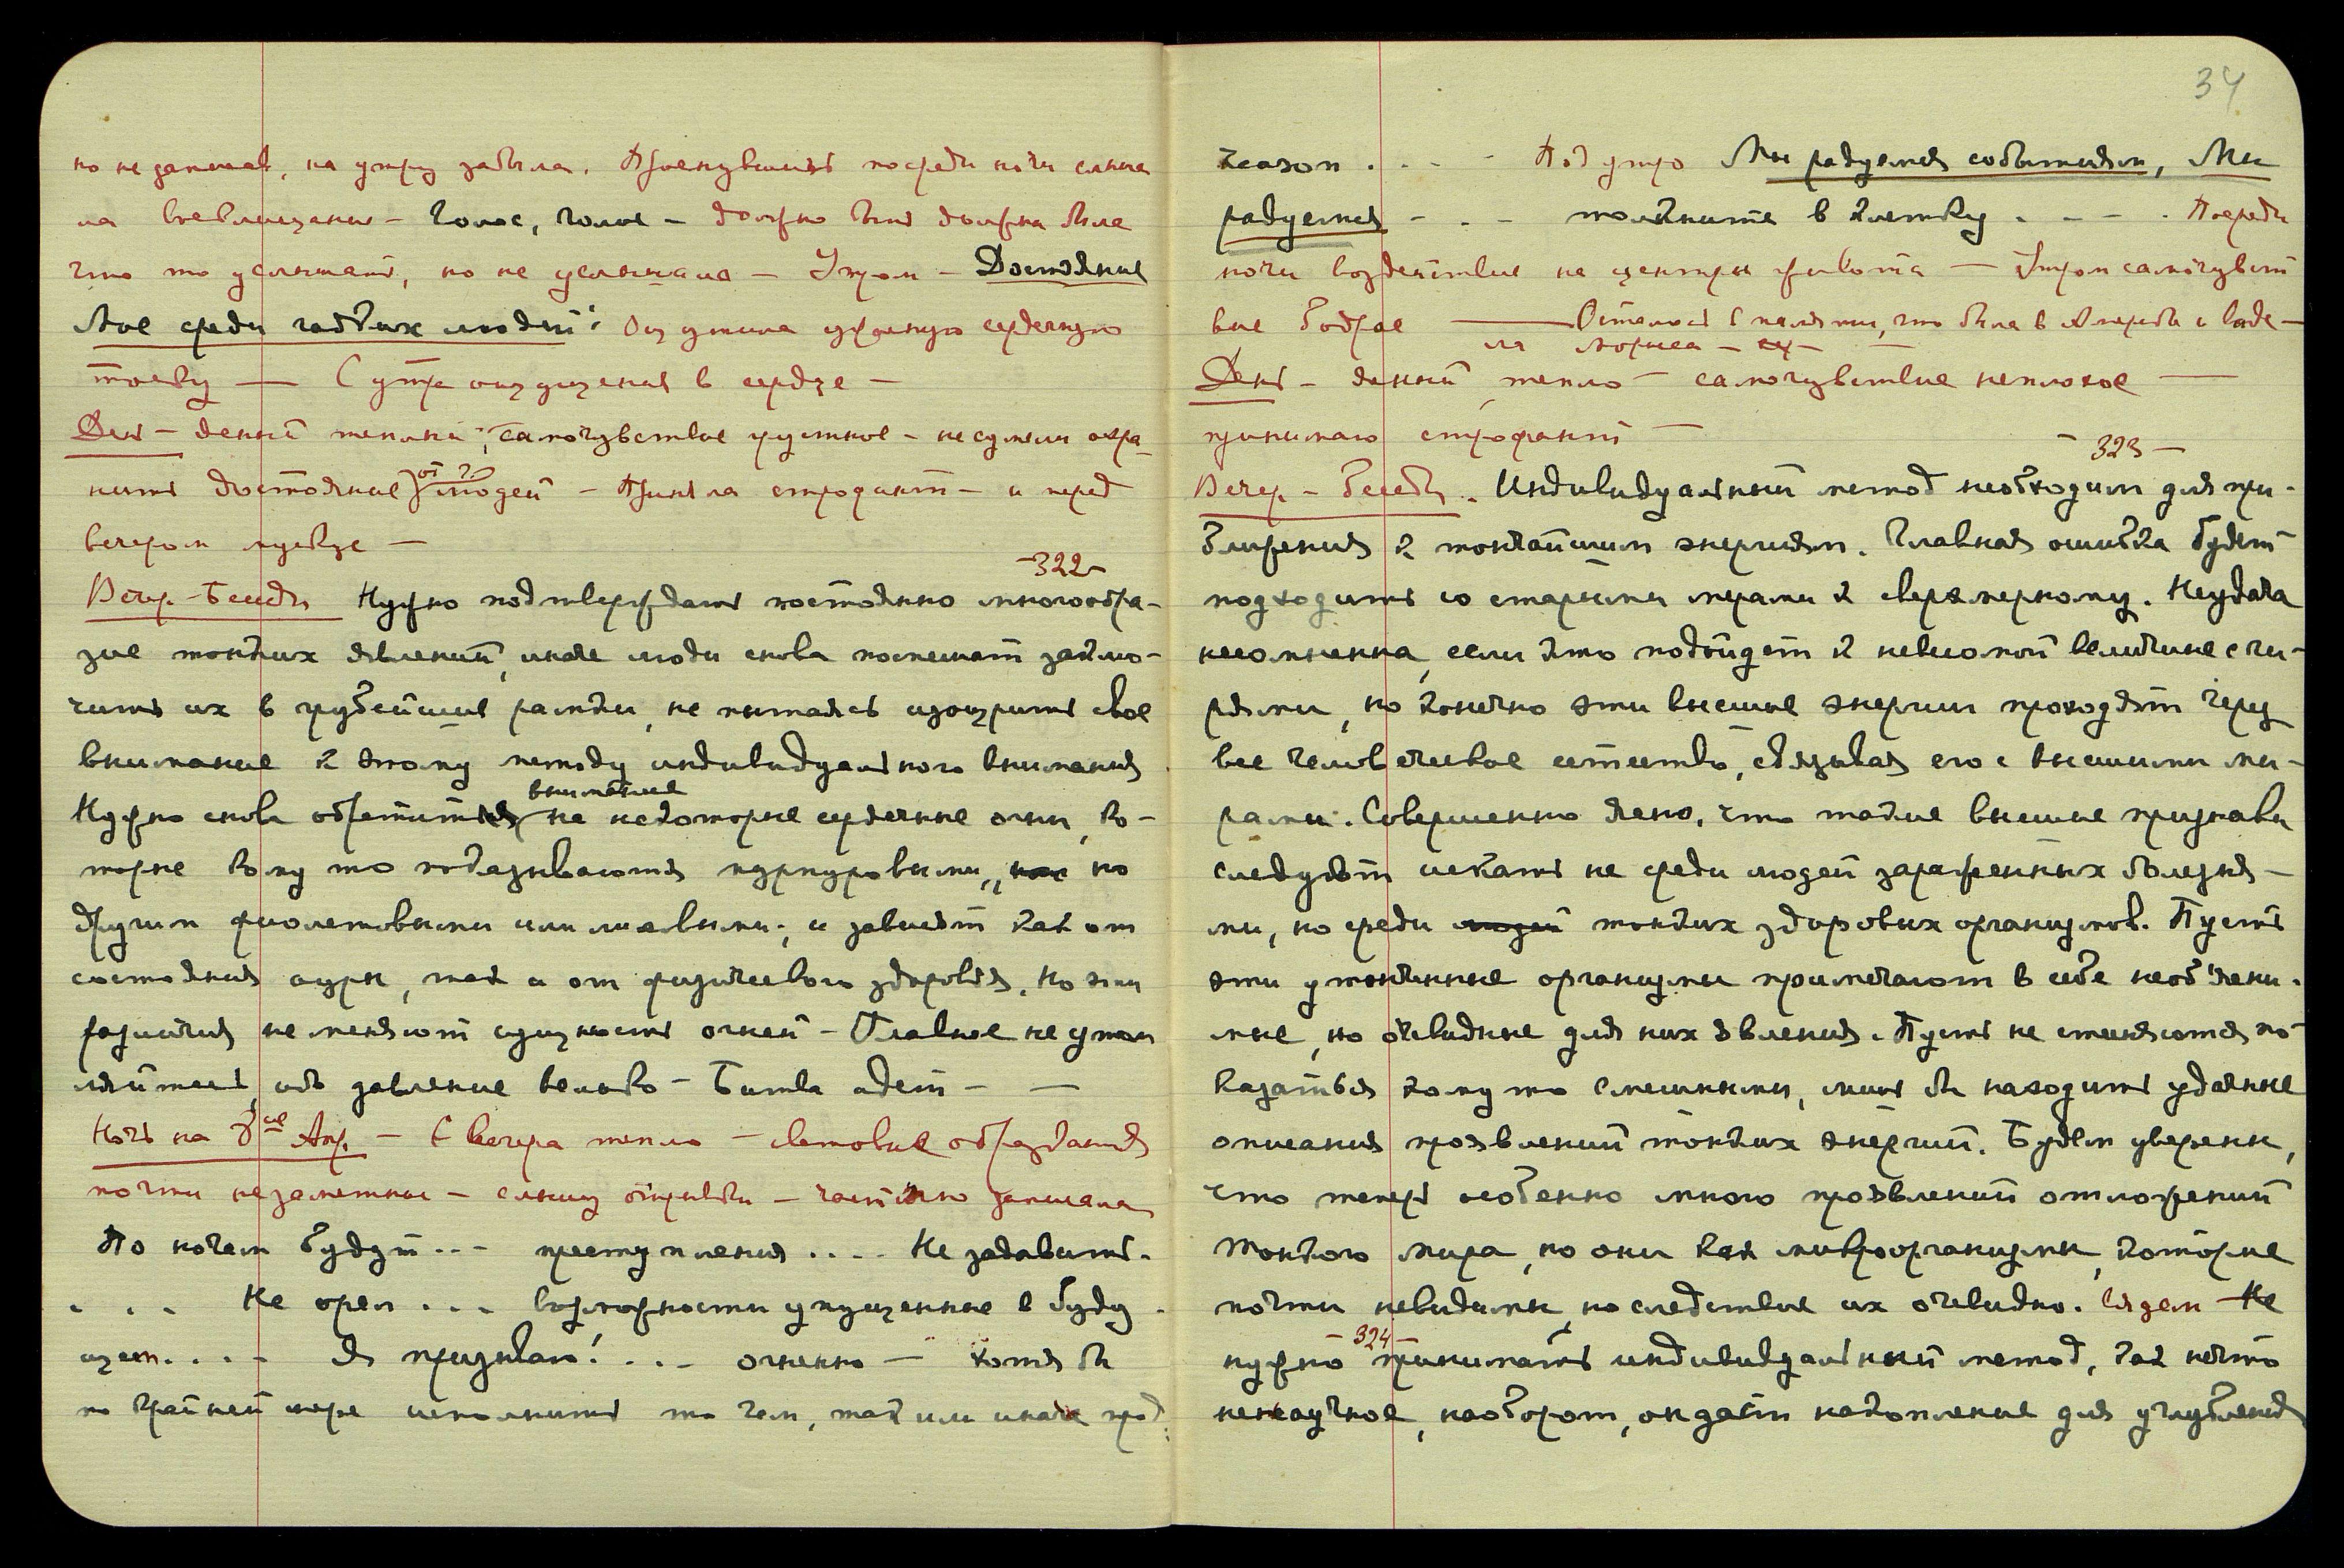 но не записав, на утру забыла. Проснувшись посреди ночи слыша
ла восклицанье – Голос, голос – должно быть должна была
что то услышать, но не услышала – Утром – Достояние
Мое среди гадких людей! Ощутила ужасную сердечную
тоску — С утра ощущения в сердце –
День – денный теплый, самочувствие грустное – не сумели охра-
нить достояние от людей – Приняла строфант – и перед
вечером мускус –
-322-
Вечер – Беседы Нужно подтверждать постоянно многообра-
зие тонких явлений, иначе люди снова поспешат заклю-
чить их в грубейшие рамки, не пытаясь изощрить свое
внимание к этому методу индивидуального внимания
внимание
Нужно снова обратить на некоторые сердечные огни, ко-
торые кому то показываются пурпуровыми, но
другим фиолетовыми или лиловыми; и зависят как от
состояния ауры, так и от физического здоровья. Но эти
различия не меняют сущность огней – Главное не утом
ляйтесь, ибо давление велико – Битва идет – —
Ночь на 8ое Апр. – С вечера тепло – световые образования
почти незаметные – слышу отрывки – частично записала
По ночам будут... преступления.... Не задавить.
. . . Не орел ... возможности упущенные в буду-
щем.... Я призываю!.... огненно — хотя бы
по крайней мере исполнить то чем, так или иначе
34
reason . . . . Под утро Мы радуемся событиям, Мы
радуемся . . . толкните в клетку . . . . Посреди
ночи воздействие на центры живота — Утром самочувст
вие бодрое —— Осталось в памяти, что была в Америке и виде-
ла Мориса –
День – денный, тепло – самочувствие неплохое —
принимаю строфант —
– 323 –
Вечер – Беседы. Индивидуальный метод необходим для при-
ближения к тончайшим энергиям. Главная ошибка будет
подходить со старыми мерами к сверхмерному. Неудача
несомненна, если кто подойдет к невесомой величине с ги-
рями, но конечно эти высшие энергии проходят через
все человеческое естество, связывая его с высшими ми-
рами. Совершенно ясно, что такие высшие признаки
следует искать не среди людей зараженных болезня-
ми, но среди людей тонких здоровых организмов. Пусть
эти утонченные организмы примечают в себе необъясни-
мые, но очевидные для них явления. Пусть не стыдятся по-
казаться кому то смешными, лишь бы находить удачные
описания проявлений тонких энергий. Будем уверены,
что теперь особенно много проявлений отложений
тонкого мира, но они как микроорганизмы, которые
почти невидимы, но следствие их очевидно. Не
– 324 –
нужно принимать индивидуальный метод, как нечто
ненаучное, наоборот, он дает накопление для углубления